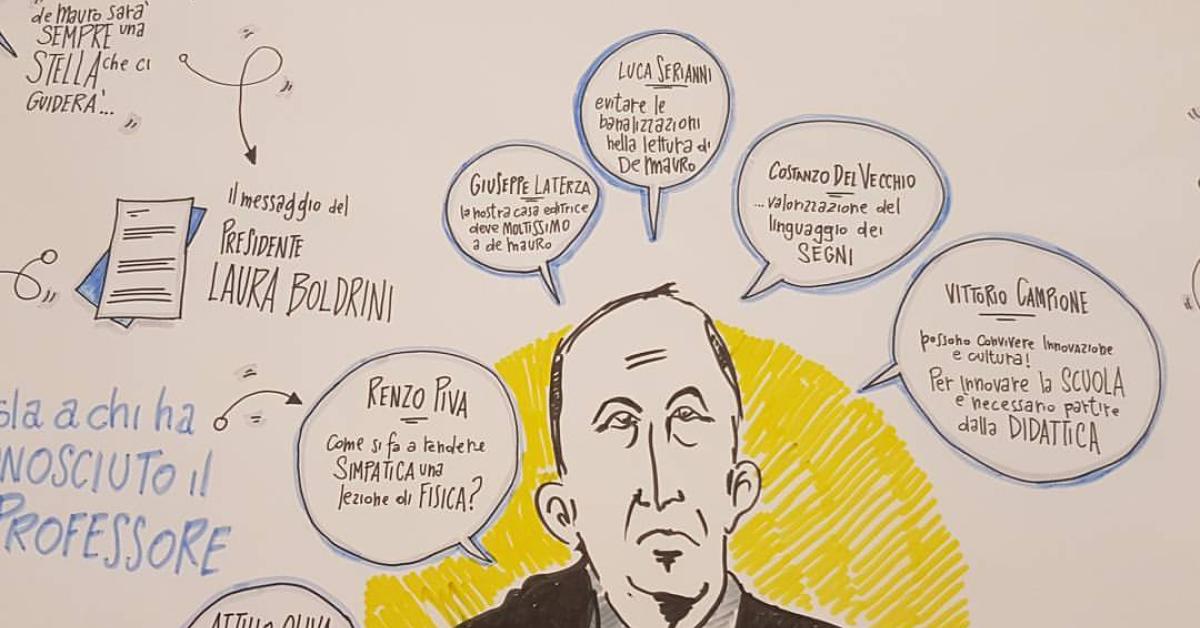 de Mauro sarà
SEMPRE una
STELLA che ci
GUIDERA'...
il messaggio del
PRESIDENTE
LAURA BOLDRINI
a chi ha
NOSCIUTO il
PROFESSORE
RENZO PIVA
Come si fa a rendere
SIMPATICA una
lezione di FISICA?
GIUSEPPE LATERZA
la nostra casa editrice
deve MOLTISSIMO
a de mauro
LUCA SERIANNI
evitare le
banalizzazioni
nella lettura di
De Mauro
COSTANZO DEL VECCHIO
...valorizzazione del
linguaggio dei
SEGNI
VITTORIO CAMPIONE
possono convivere innovazione
e cultura!
Per innovare la SCUOLA
e' necessario partire
dalla DIDATTICA
ATTILIO OLIVA